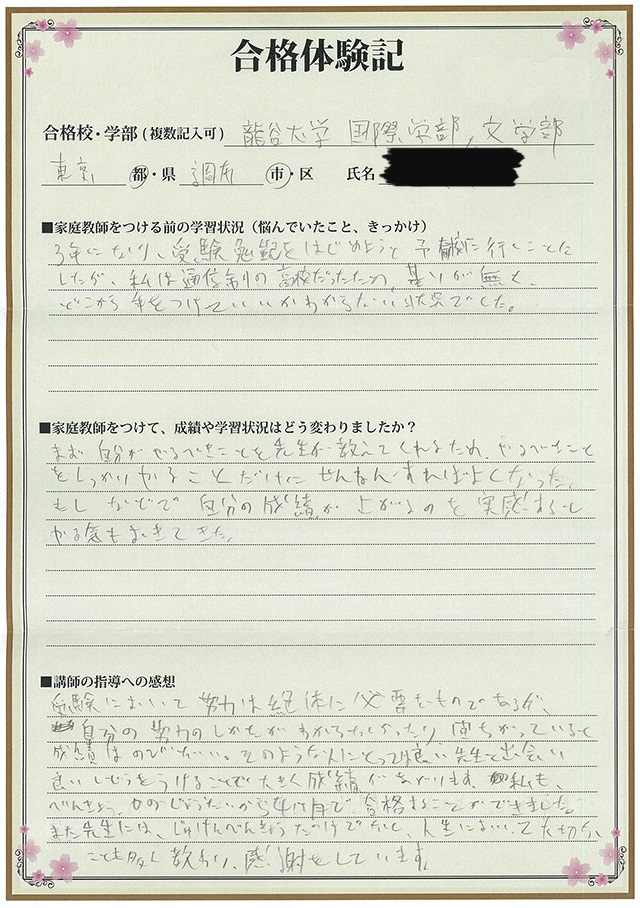 合格体験記
合格校・学部（複数記入可） 龍谷大学 国際学部, 文学部
東京 都・県 調布 市・区 氏名
■家庭教師をつける前の学習状況（悩んでいたこと、きっかけ）
3年になり、受験勉強をはじめようと 予備校に行くことに
したが、私は通信制の高校だったため、基そが無く、
どこから手をつけていいかわからない状態でした。
■家庭教師をつけて、成績や学習状況はどう変わりましたか？
まず 自分がやるべきことを先生が教えてくれるため、やるべきこと
をしっかりやることだけに せんねんすればよくなった。
もしなどで 自分の成績が 上がるのを 実感するし
やる気もおきてきた。
■講師の指導への感想
受験において 努力は絶体に必要なものであるが、
自分の努力のしかたが わからなかったり 間ちがっていると
成績はのびない。そのような人にとって良い先生と出会い
良いしどうをうけることで大きく成績が あがります。私も、
べんきょう のじょうたいから 4ヶ月で 合格することができました。
また先生には、じゅけんべんきょうだけでなく、人生において大切な
ことも多く教わり、感謝をしています。